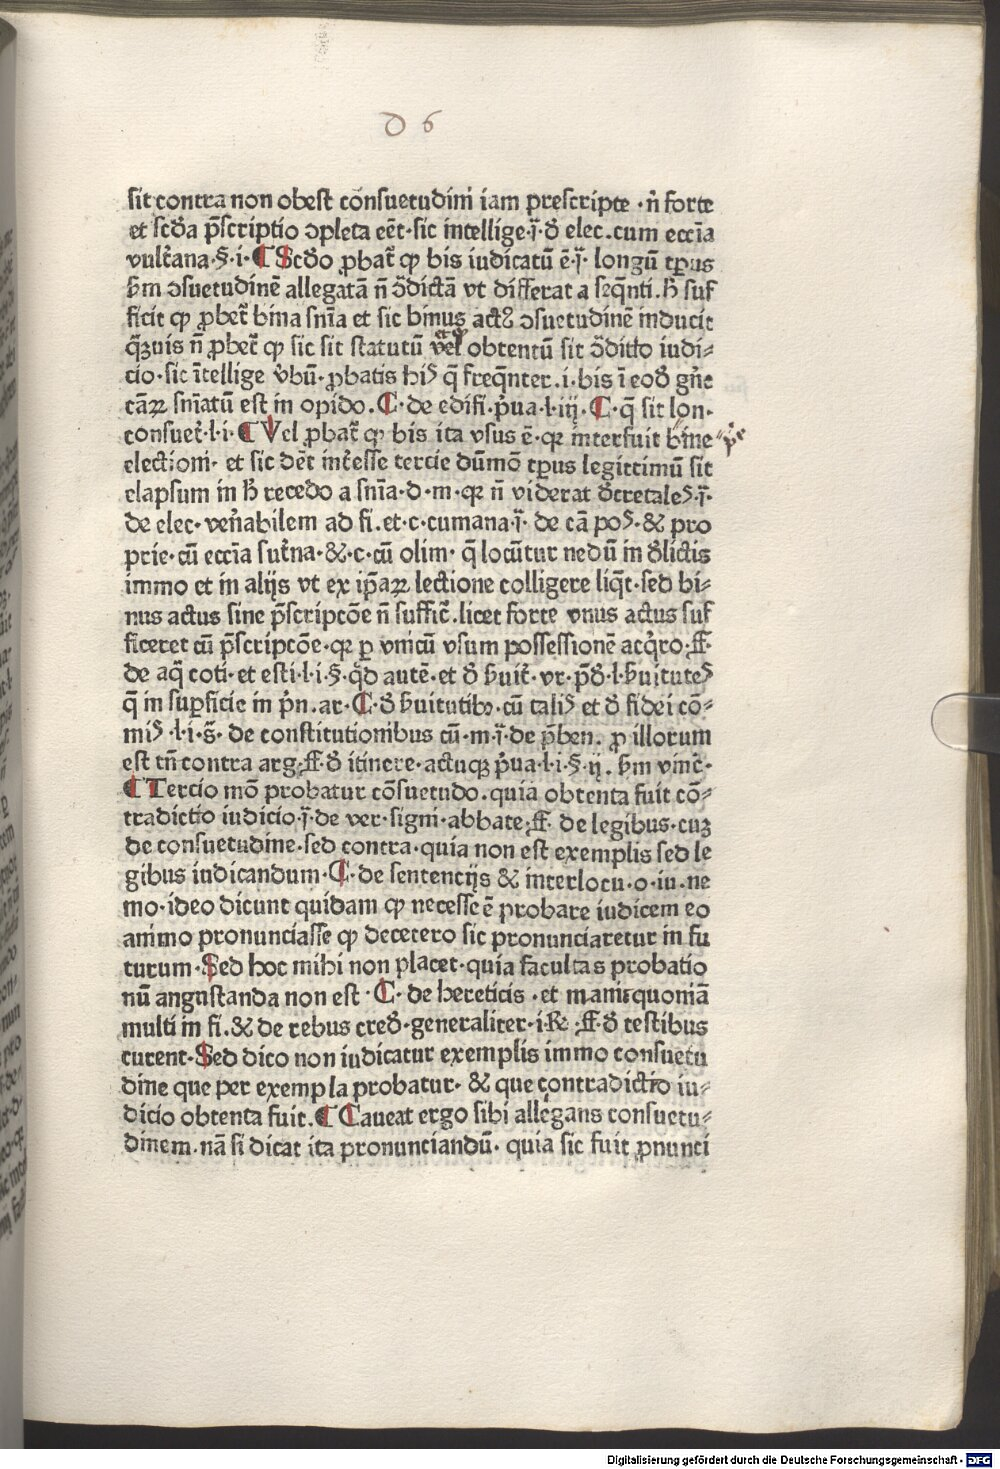 D 6
sit contra non obest cōnsuetudini iam prescripte · n̄ forte
et scd̄a p̄scriptio ↄpleta eēt · sic intellige · j̄ · d̄ elec . cum eccīa
vult̄ana · § · i · ¶ Scd̄o ꝓbat̄ ꝙ bis iudicatū ē · j̄ · longū tp̄us
ẜm ↄsuetudinē allegatā n̄ ↄ̄dictā vt differat a seq̄nti . h̄ suf
ficit ꝙ ꝓbet̄ bina sn̄ia et sic binus actꝰ ↄsuetudinē inducit
q̄ꝫuis n̄ ꝓbet̄ ꝙ sic sit statutū vel obtentū sit ↄ̄dicto iudi⸗
cio · sic ītellige v̄bū · ꝓbatis hiꝰ q̄ freq̄nter . i · bis ī eod̄ gn̄e
cāꝝ sn̄iatū est in opido . C · de edifi · p̄ua · l · iij · C · q̄ sit lon ·
consuet̄ · l · i · ¶ Vel ꝓbat̄ ꝙ bis ita vsus ē · qꝛ interfuit bine
electioni · et sic dēt int̄esse tercie dūmō tp̄us legittimū sit
elapsum in h̄ recedo a sn̄ia · d · m · qꝛ n̄ viderat d̄cretaleꝰ · j̄ ·
de elec · ven̄abilem ad fi . et · c · cumana · j̄ · de cā poꝰ · & pro
prie · cū eccīa sut̄na · & · c · cū olim · q̄ locūtur nedū in d̄lictis
immo et in alijs vt ex ip̄aꝝ lectione colligere liq̄t · sed bi⸗
nus actus sine p̄scripcōe n̄ suffic̄ . licet forte vnus actus suf
ficeret cū p̄scripcōe · qꝛ ꝑ vnicū vsum possessionē acq̄ro · ff ·
de aq̄ coti · et esti · l · i · § · q̄d autē · et d̄ ẜuit̄ · vr · p̄d̄ · l · ẜuituteꝰ
q̄ in suꝑficie in p̄n . ar · C · d̄ ẜuitutibꝫ · cū taliꝰ et d̄ fidei cō⸗
miꝰ · l · i · s̄ · de constitutionibus cū · m · j̄ · de p̄ben . ꝓ illorum
est tn̄ contra arg · ff · d̄ itinere · actuqꝫ p̄ua · l · i · § · ij . ẜm vinc̄ ·
¶ Tercio mō probatur cōnsuetudo . quia obtenta fuit cō⸗
tradicto iudicio · j̄ · de ver · signi · abbate · ff · de legibus · cuꝫ
de consuetudine · sed contra · quia non est exemplis sed le
gibus iudicandum · C · de sentencijs & interlocu · o · iu · ne
mo · ideo dicunt quidam ꝙ necesse ē probare iudicem eo
animo pronunciasse ꝙ decetero sic pronunciaretur in fu
turum · Sed hoc mihi non placet · quia facultas probatio
nū angustanda non est · C · de hereticis · et mani · quoniā
multi in fi . & de rebus cred̄ · generaliter · i · ℞ · ff · d̄ testibus
curent · Sed dico non iudicatur exemplis immo consuetu
dine que per exempla probatur · & que contradictio iu⸗
dicio obtenta fuit . ¶ Caueat ergo sibi allegans consuetu⸗
dinem . nā si dicat ita pronunciandū · quia sic fuit ꝓnunci
Digitalisierung gefördert durch die Deutsche Forschungsgemeinschaft - DFG